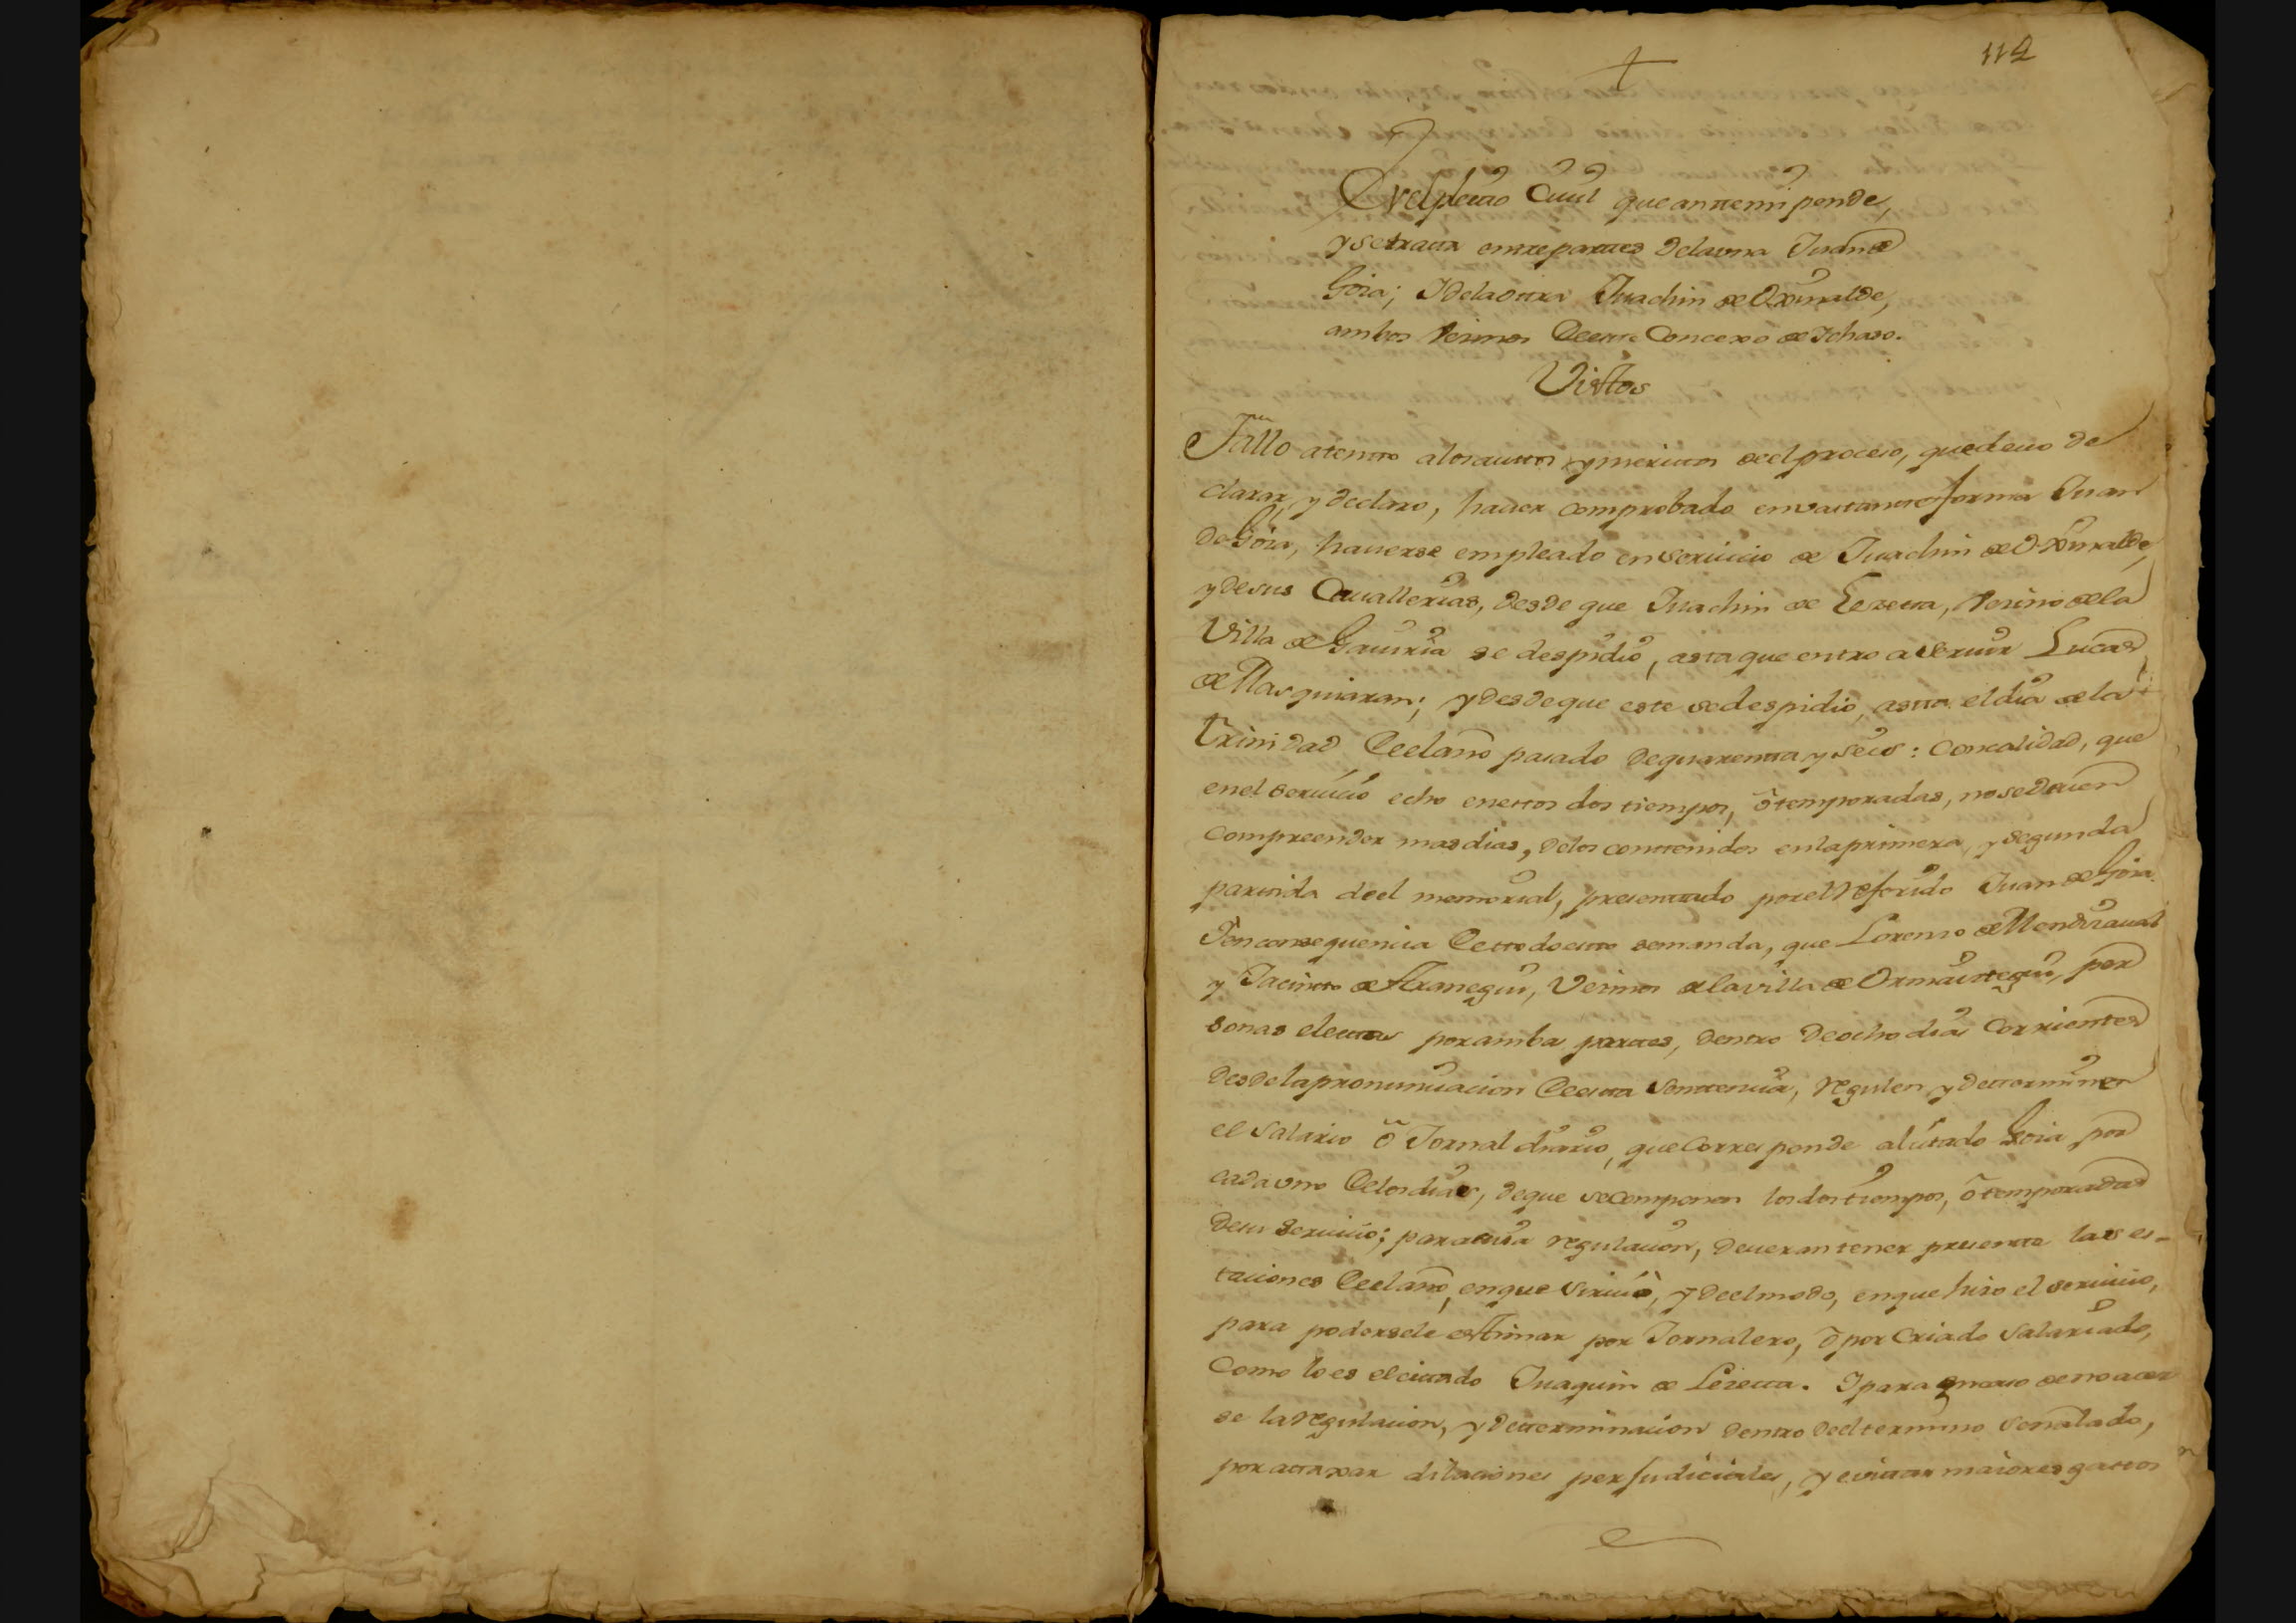 112
En el pleito Ciuil que antte mi pende,
y se tratta entre parttes de la vna Juan de
Goia; I de la ottra Juachin de Oxiñalde,
ambos Vezinos de este Concexo de Ichaso.
Visttos
Fallo atentto a los auttos, y merittos de el proceso, que deuo de
clarar, y declaro, hauer comprobado en vastantte forma Juan
de Goia, hauerse empleado en seruicio de Juachin de Oxiñalde,
y de sus Cauallerias, desde que Juachin de Lezetta, Vezino de la
Villa de Gauiria se despidio, asta que entro a seruir Lucas
de Masquiaran; y desde que este se despidio, astta el dia de la
Trinidad de el año pasado de quarentta y seis: Con calidad, que
en el seruicio echo en estos dos tiempos, ô temporadas, no se deuen
compreender mas dias, de los conttenidos en la primera, y segunda
partida de el memorial, presenttado por el referido Juan de Goia.
I en consequencia de ttodo estto demanda, que Lorenzo de Mendizaual
y Jacintto de Aranegui, Vezinos de la villa de Ormaiztegui, per
sonas electtas por amba parttes, dentro de ocho dias Corrientes
desde la pronunciacion de estta Senttencia, regulen, y detterminen
el Salario ô Jornal diario, que corresponde al citado Goia por
cada vno de los dias, de que se componen los dos tiempos, ô temporadas
de su seruicio; para cuia regulacion, deueran tener presentte las es-
taciones de el año, en que siruiò, y de el modo, en que hizo el seruicio,
para poderse le esttimar por Jornalero, ô por Criado Salariado,
Como lo es el cittado Juaquin de Lezetta. I para en caso de no acer
se la regulacion, y detterminacion dentro de el termino señalado,
por attaxar dilaciones perjudiciales, y euittar maiores gasttos